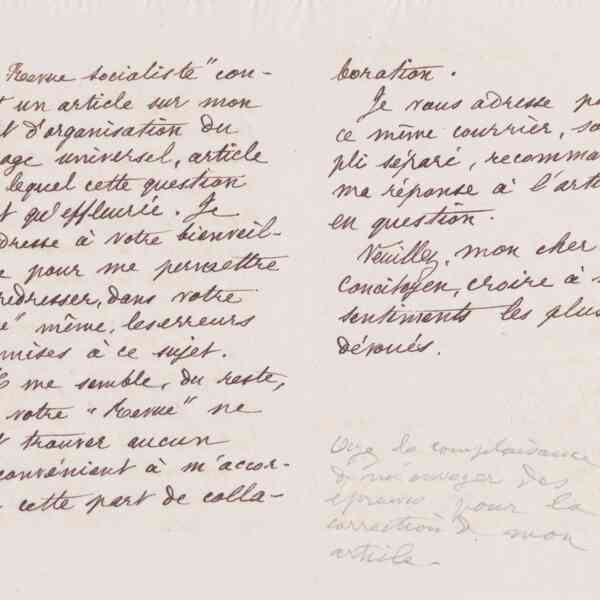 Revue socialiste" con-
t un article sur mon
t d'organisation du
age universel, article
lequel cette question
t qu'effleurée. Je
dresse à votre bienveil-
e pour me permettre
redresser, dans votre
e" même, les erreurs
mises à ce sujet.
me semble, du reste,
votre "Revue" ne
t trouver aucun
convénient à m'accor-
cette part de colla-
boration.
Je vous adresse pa
ce même courrier, so
pli séparé, recomma
ma réponse à l'arti
en question.
Veuillez, mon cher
concitoyen, croire à
sentiments les plus
dévoués.
la complaisance
de m'envoyer des
épreuves pour la
correction de mon
article.